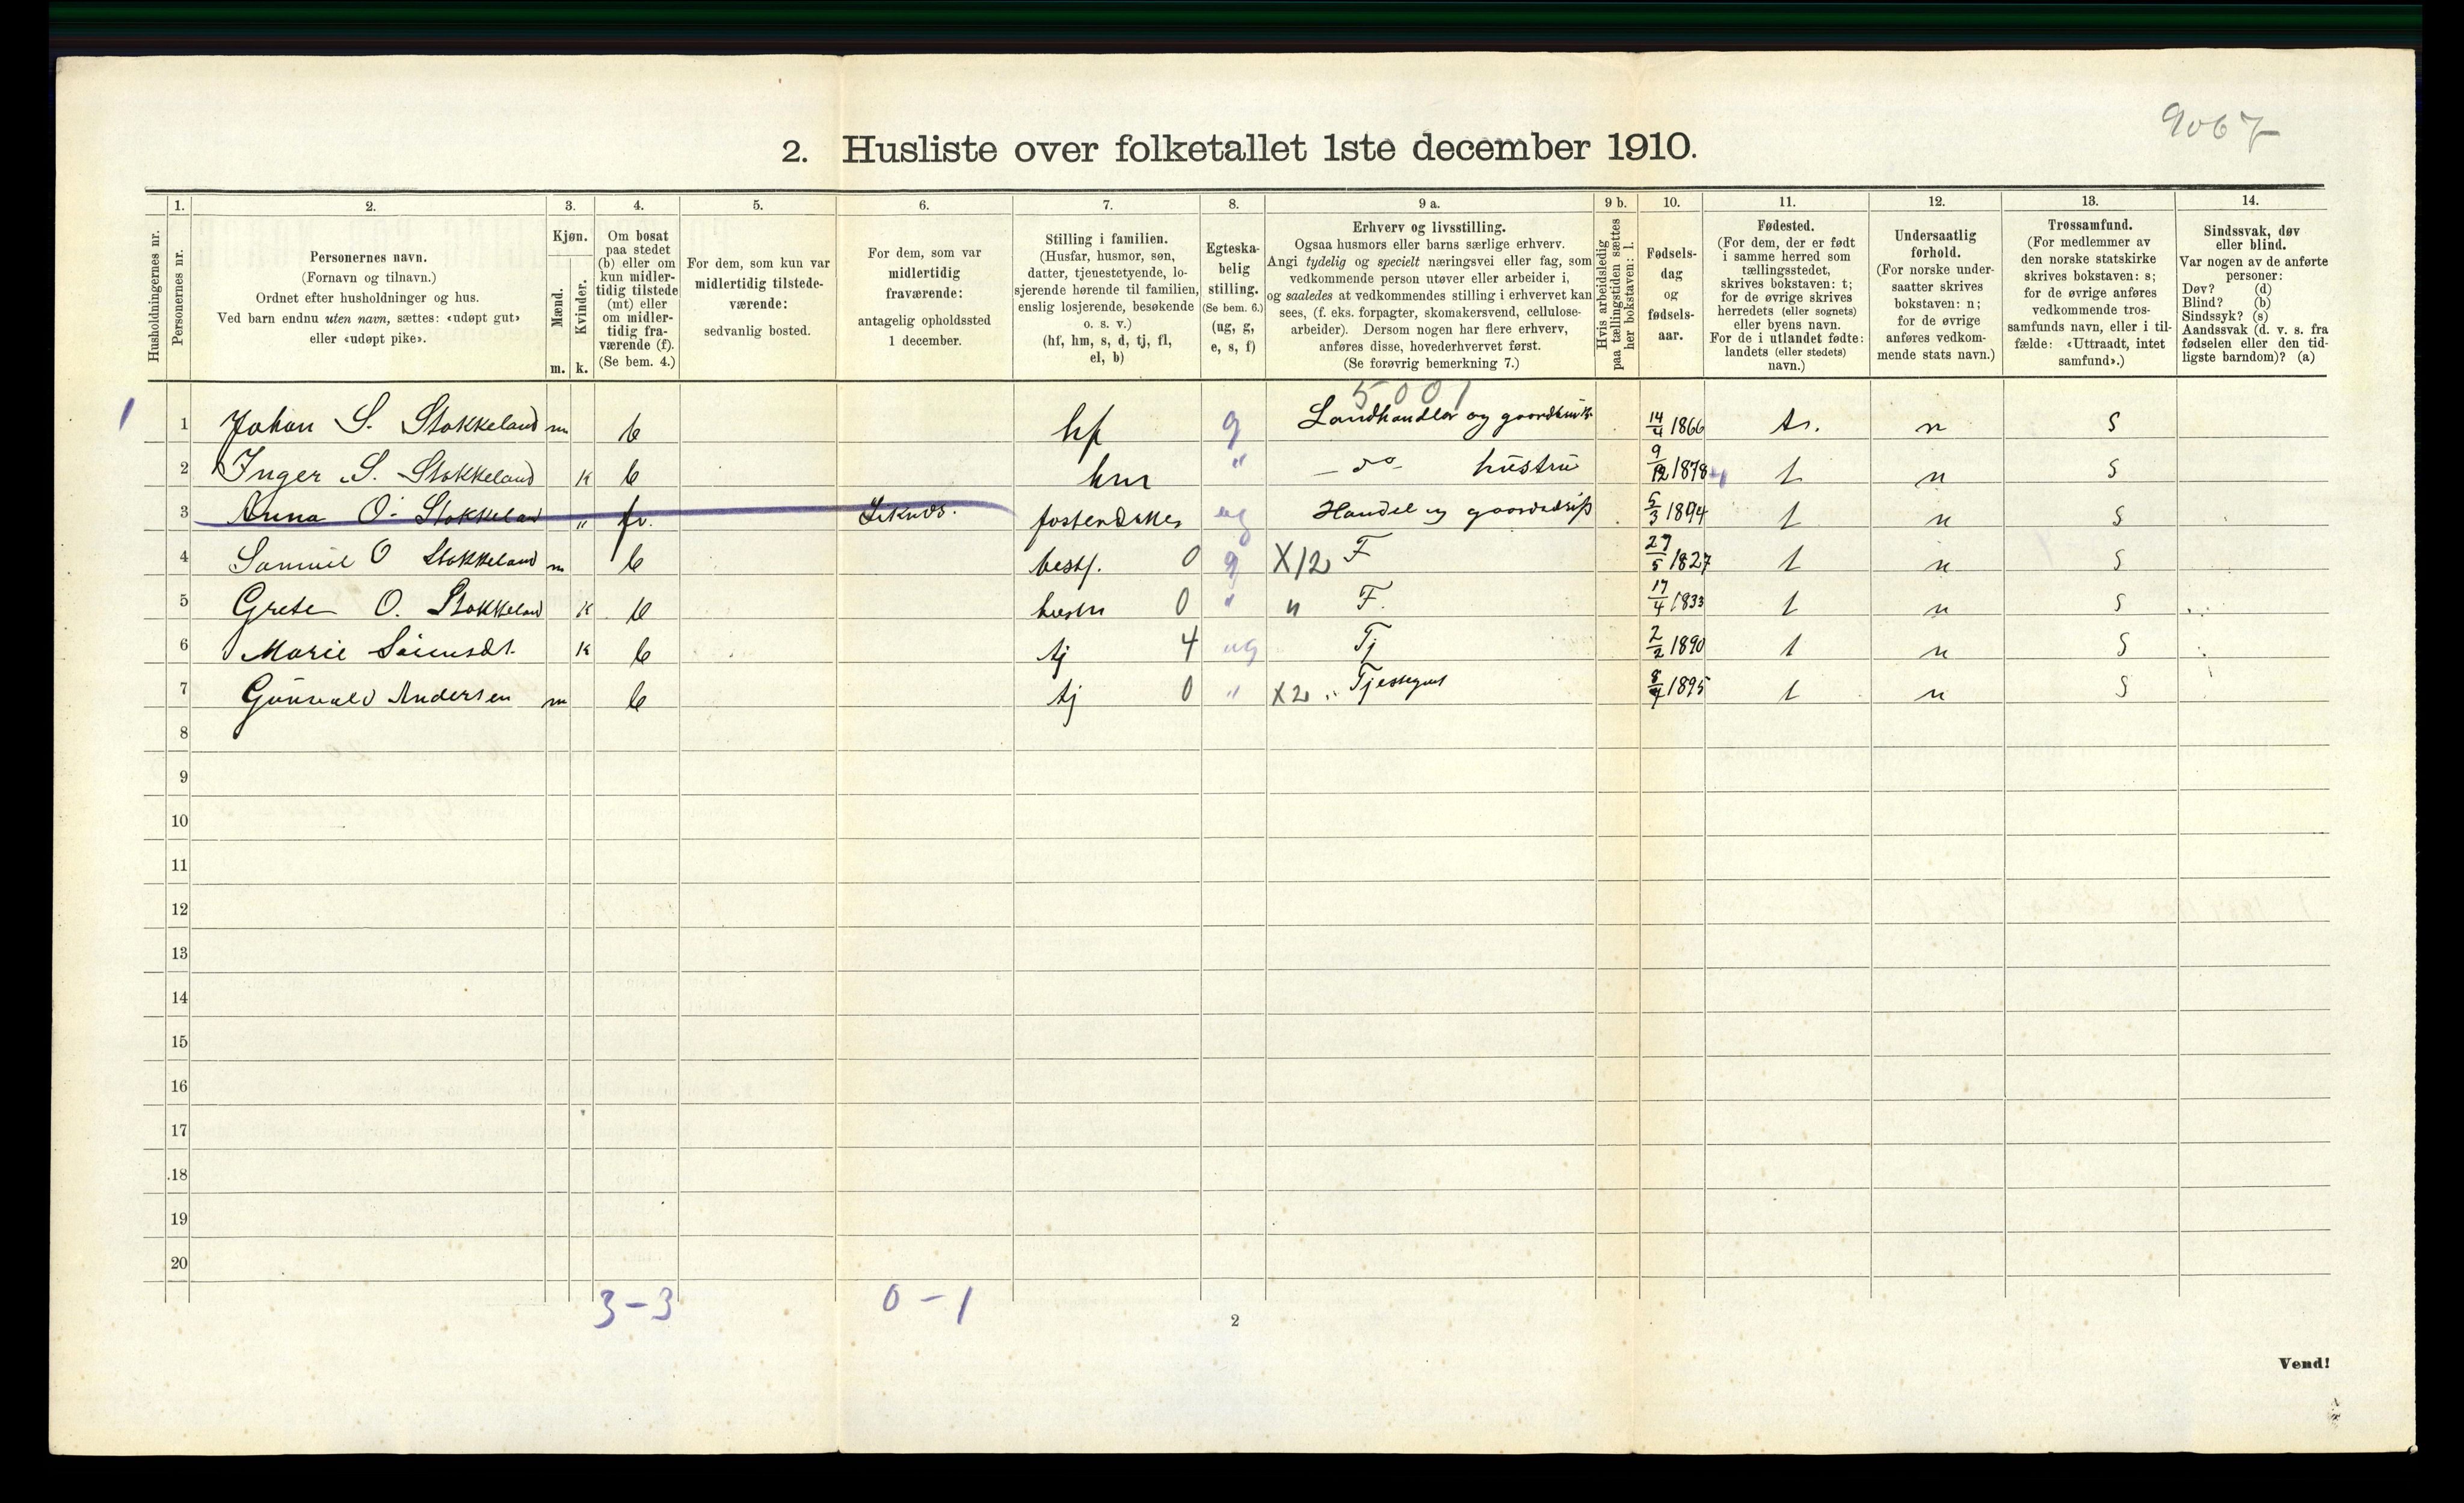 9067
2. Husliste over folketallet 1ste december 1910.
Husholdningernes nr.
1. Personernes nr.
2. Personernes navn. (Fornavn og tilnavn.) Ordnet efter husholdninger og hus. Ved barn endnu uten navn, sættes: «udøpt gut» eller «udøpt pike».
3. Kjøn. Mænd. m. Kvinder. k.
4. Om bosat paa stedet (b) eller om kun midlertidig tilstede (mt) eller om midlertidig fraværende (f). (Se bem. 4.)
5. For dem, som kun var midlertidig tilstedeværende: sedvanlig bosted.
6. For dem, som var midlertidig fraværende: antagelig opholdssted 1 december.
7. Stilling i familien. (Husfar, husmor, søn, datter, tjenestetyende, losjerende hørende til familien, enslig losjerende, besøkende o. s. v.) (hf, hm, s, d, tj, fl, el, b)
8. Egteskabelig stilling. (Se bem. 6.) (ug, g, e, s, f)
9 a. Erhverv og livsstilling. Ogsaa husmors eller barns særlige erhverv. Angi tydelig og specielt næringsvei eller fag, som vedkommende person utøver eller arbeider i, og saaledes at vedkommendes stilling i erhvervet kan sees, (f. eks. forpagter, skomakersvend, cellulosearbeider). Dersom nogen har flere erhverv, anføres disse, hovederhvervet først. (Se forøvrig bemerkning 7.)
9 b. Hvis arbeidsledig paa tællingstiden sættes her bokstaven: l.
10. Fødselsdag og fødselsaar.
11. Fødested. (For dem, der er født i samme herred som tællingsstedet, skrives bokstaven: t; for de øvrige skrives herredets (eller sognets) eller byens navn. For de i utlandet fødte: landets (eller stedets) navn.)
12. Undersaatlig forhold. (For norske undersaatter skrives bokstaven: n; for de øvrige anføres vedkommende stats navn.)
13. Trossamfund. (For medlemmer av den norske statskirke skrives bokstaven: s; for de øvrige anføres vedkommende trossamfunds navn, eller i tilfælde: «Uttraadt, intet samfund».)
14. Sindssvak, døv eller blind. Var nogen av de anførte personer: Døv? (d) Blind? (b) Sindssyk? (s) Aandssvak (d. v. s. fra fødselen eller den tidligste barndom)? (a)
5001
1 1 Johan S. Stokkeland m b hf g Landhandler og 14/4 1866 n s
2 Inger S. Stokkeland k b hm " - do - hustru 9/12 1878 t n s
3 Anna O. Stokkeland " ug Handel og gaardsdrift 5/3 1894 t n s
4 Samuel O Stokkeland m b 0 g X12 F 27/5 1827 t n s
5 Grete O. Stokkeland k b 0 " " F. 17/4 1833 t n s
6 Marie k b tj 4 ug Tj 2/2 1890 t n s
7 Gunvald Andersen m b tj 0 " X2 " 1895 t n s
8
9
10
11
12
13
14
15
16
17
18
19
20
3-3 0-1
2
Vend!